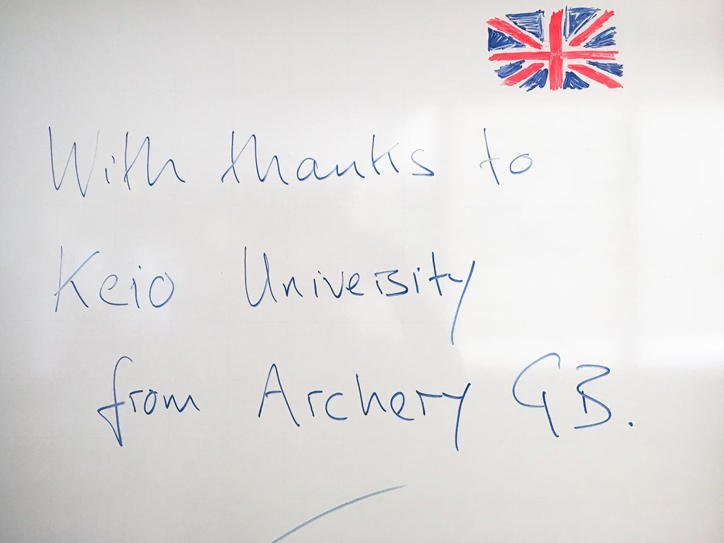 With thanks to
Keio University
from Archery GB.